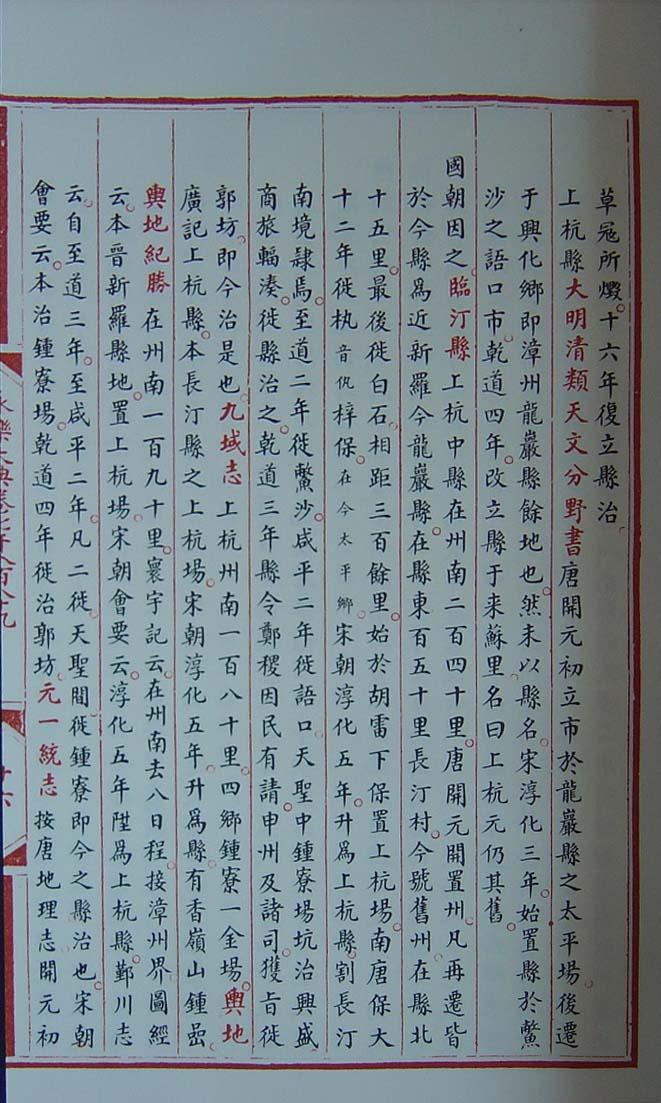 草冦所燬十六年復立縣治
上杭縣大明清類天文分野書唐開元初立市於龍巖縣之太平場後遷
于興化鄉即漳州龍巖縣餘地也然未以縣名宋淳化三年始置縣於鱉
沙之語口市乾道四年改立縣于来蘇里名曰上杭元仍其舊
國朝因之臨汀縣上杭中縣在州南二百四十里唐開元開置州凡再遷皆
於今縣爲近新羅今龍巖縣在縣東百五十里長汀村今號舊州在縣北
十五里最後徙白石相距三百餘里始於胡雷下保置上杭場南唐保大
十二年徙秇音仇梓保在今太平鄉宋朝淳化五年升爲上杭縣割長汀
南境隷焉至道二年徙鱉沙咸平二年徙語口天聖中鍾寮場坑治興盛
商旅輻湊徙縣治之乾道三年縣令鄭稷因民有請申州及諸司獲旨徙
郭坊即今治是也九域志上杭州南一百八十里四鄉鍾寮一金場輿地
廣記上杭縣本長汀縣之上杭場宋朝淳化五年升爲縣有香嶺山鍾寮
輿地紀勝在州南一百九十里寰宇記云在州南去八日程接漳州界圖經
云本晉新羅縣地置上杭場宋朝會要云淳化五年陞爲上杭縣鄞川志
云自至道三年至咸平二年凡二徙天聖間徙鍾寮即今之縣治也宋朝
會要云本治鍾寮場乾道四年徙治郭坊元一統志按唐地理志開元初
永樂大典卷七千八百八九
十六